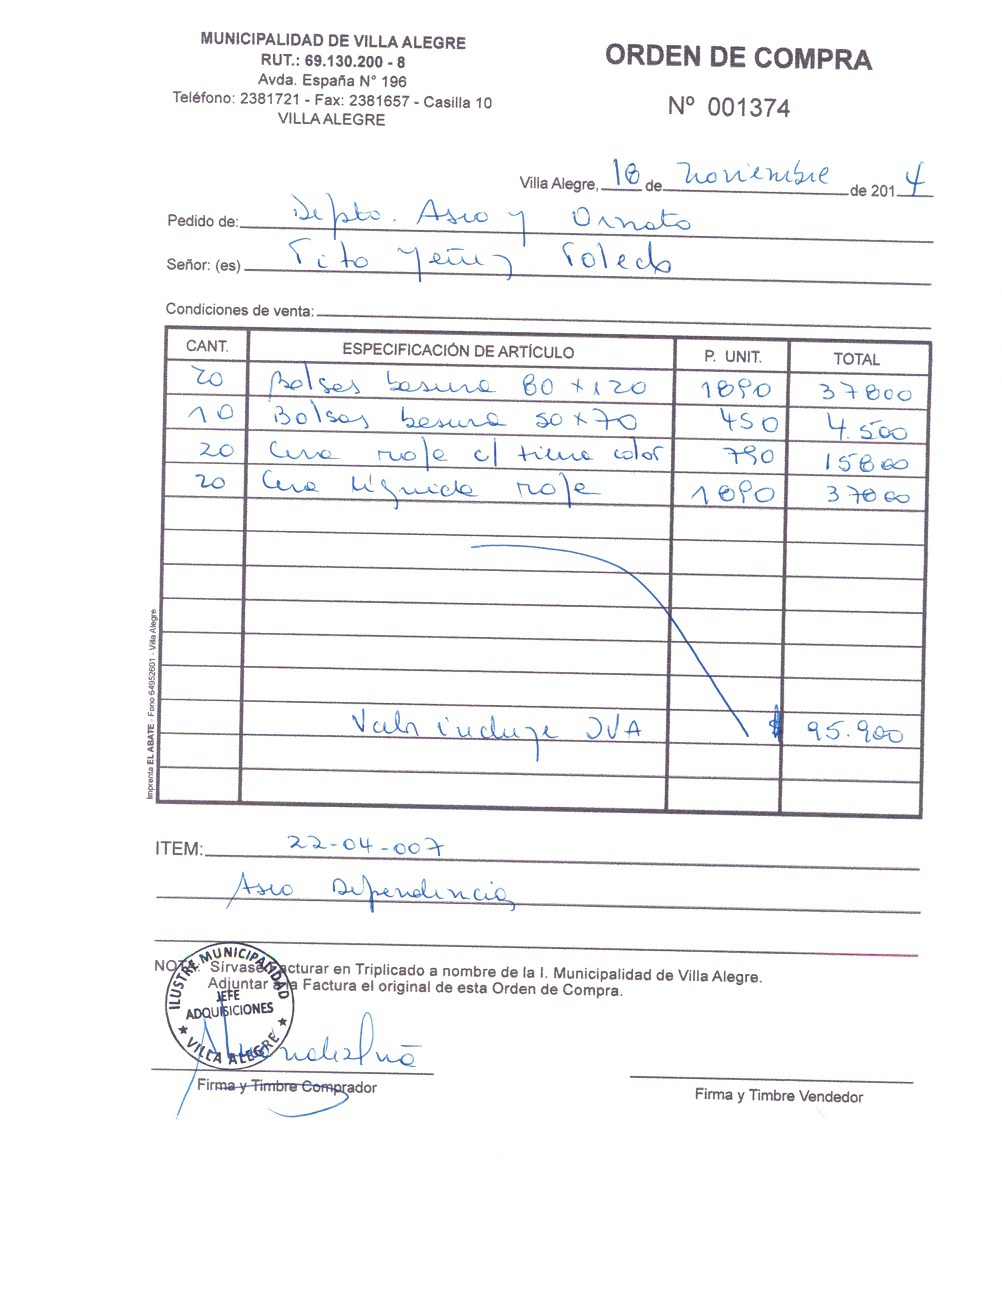 MUNICIPALIDAD DE VILLA ALEGRE
RUT.: 69.130.200 - 8
Avda. España N° 196
Teléfono: 2381721 - Fax: 2381657 - Casilla 10
VILLA ALEGRE
ORDEN DE COMPRA
Nº 001374
Villa Alegre, 18 de noviembre de 2014
Pedido de: Depto. Aseo y Ornato
Señor: (es) Tito Yeñez Toledo
Condiciones de venta:
CANT. ESPECIFICACIÓN DE ARTÍCULO P. UNIT. TOTAL
20 Bolsas basura 80 x 120 1890 37800
10 Bolsas basura 50 x 70 450 4.500
20 Cera roja c/ tierra color 790 15800
20 Cera líquida roja 1890 37800
Valor incluye IVA $ 95.900
Imprenta EL ABATE - Fono 64952601 - Villa Alegre
ITEM: 22-04-007
Aseo Dependencias
NOTA: Sírvase Facturar en Triplicado a nombre de la I. Municipalidad de Villa Alegre.
Adjuntar a la Factura el original de esta Orden de Compra.
ILUSTRE MUNICIPALIDAD
JEFE
ADQUISICIONES
★ VILLA ALEGRE ★
Firma y Timbre Comprador
Firma y Timbre Vendedor